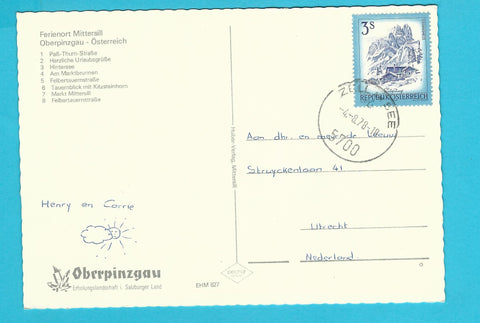 Ferienort Mittersill
Oberpinzgau - Österreich
1 Paß-Thurn-Straße
2 Herzliche Urlaubsgrüße
3 Hintersee
4 Am Marktbrunnen
5 Felbertauernstraße
6 Tauernblick mit Kitzsteinhorn
7 Markt Mittersill
8 Felbertauernstraße
Henry en Corrie
Oberpinzgau
Erholungslandschaft i. Salzburger Land
EHM 627
Huber Verlag, Mittersill
3S
REPUBLIK ÖSTERREICH
ZELL SEE
-4.-8.78-18
5700
Aan dhr. en
Struyckenlaan 41
Utrecht
Nederland